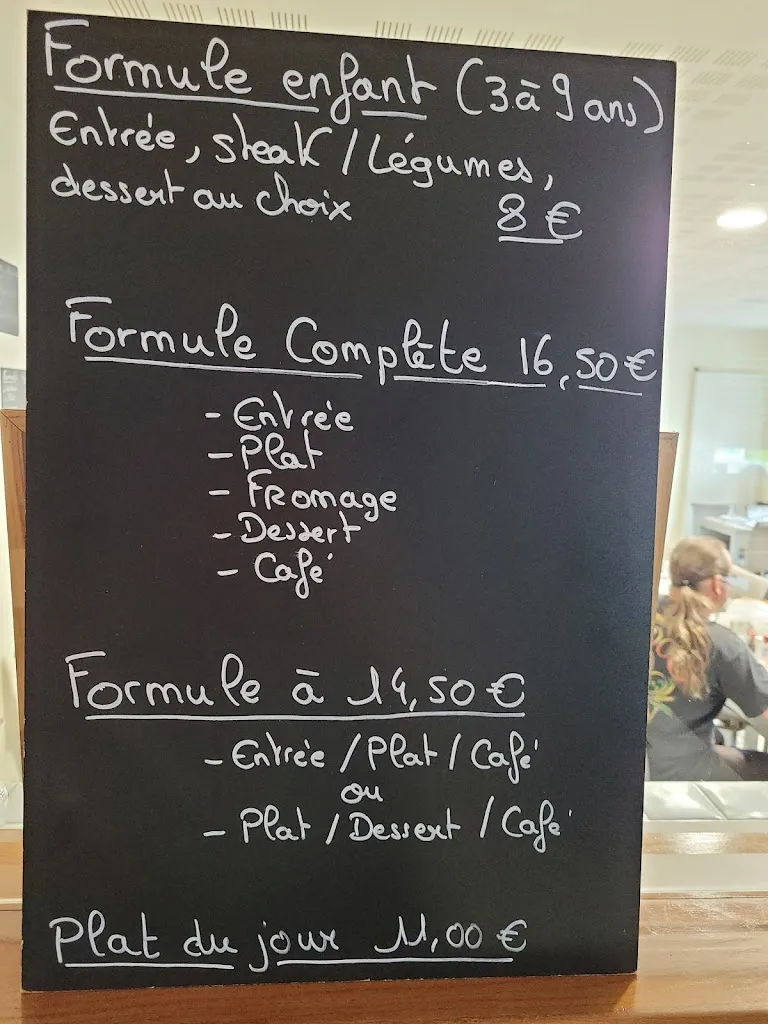 Formule enfant (3 à 9 ans)
Entrée, steak / Légumes,
dessert au choix 8 €
Formule Complète 16,50 €
- Entrée
- Plat
- Fromage
- Dessert
- Café
Formule à 14,50 €
- Entrée / Plat / Café
ou
- Plat / Dessert / Café
Plat du jour 11,00 €